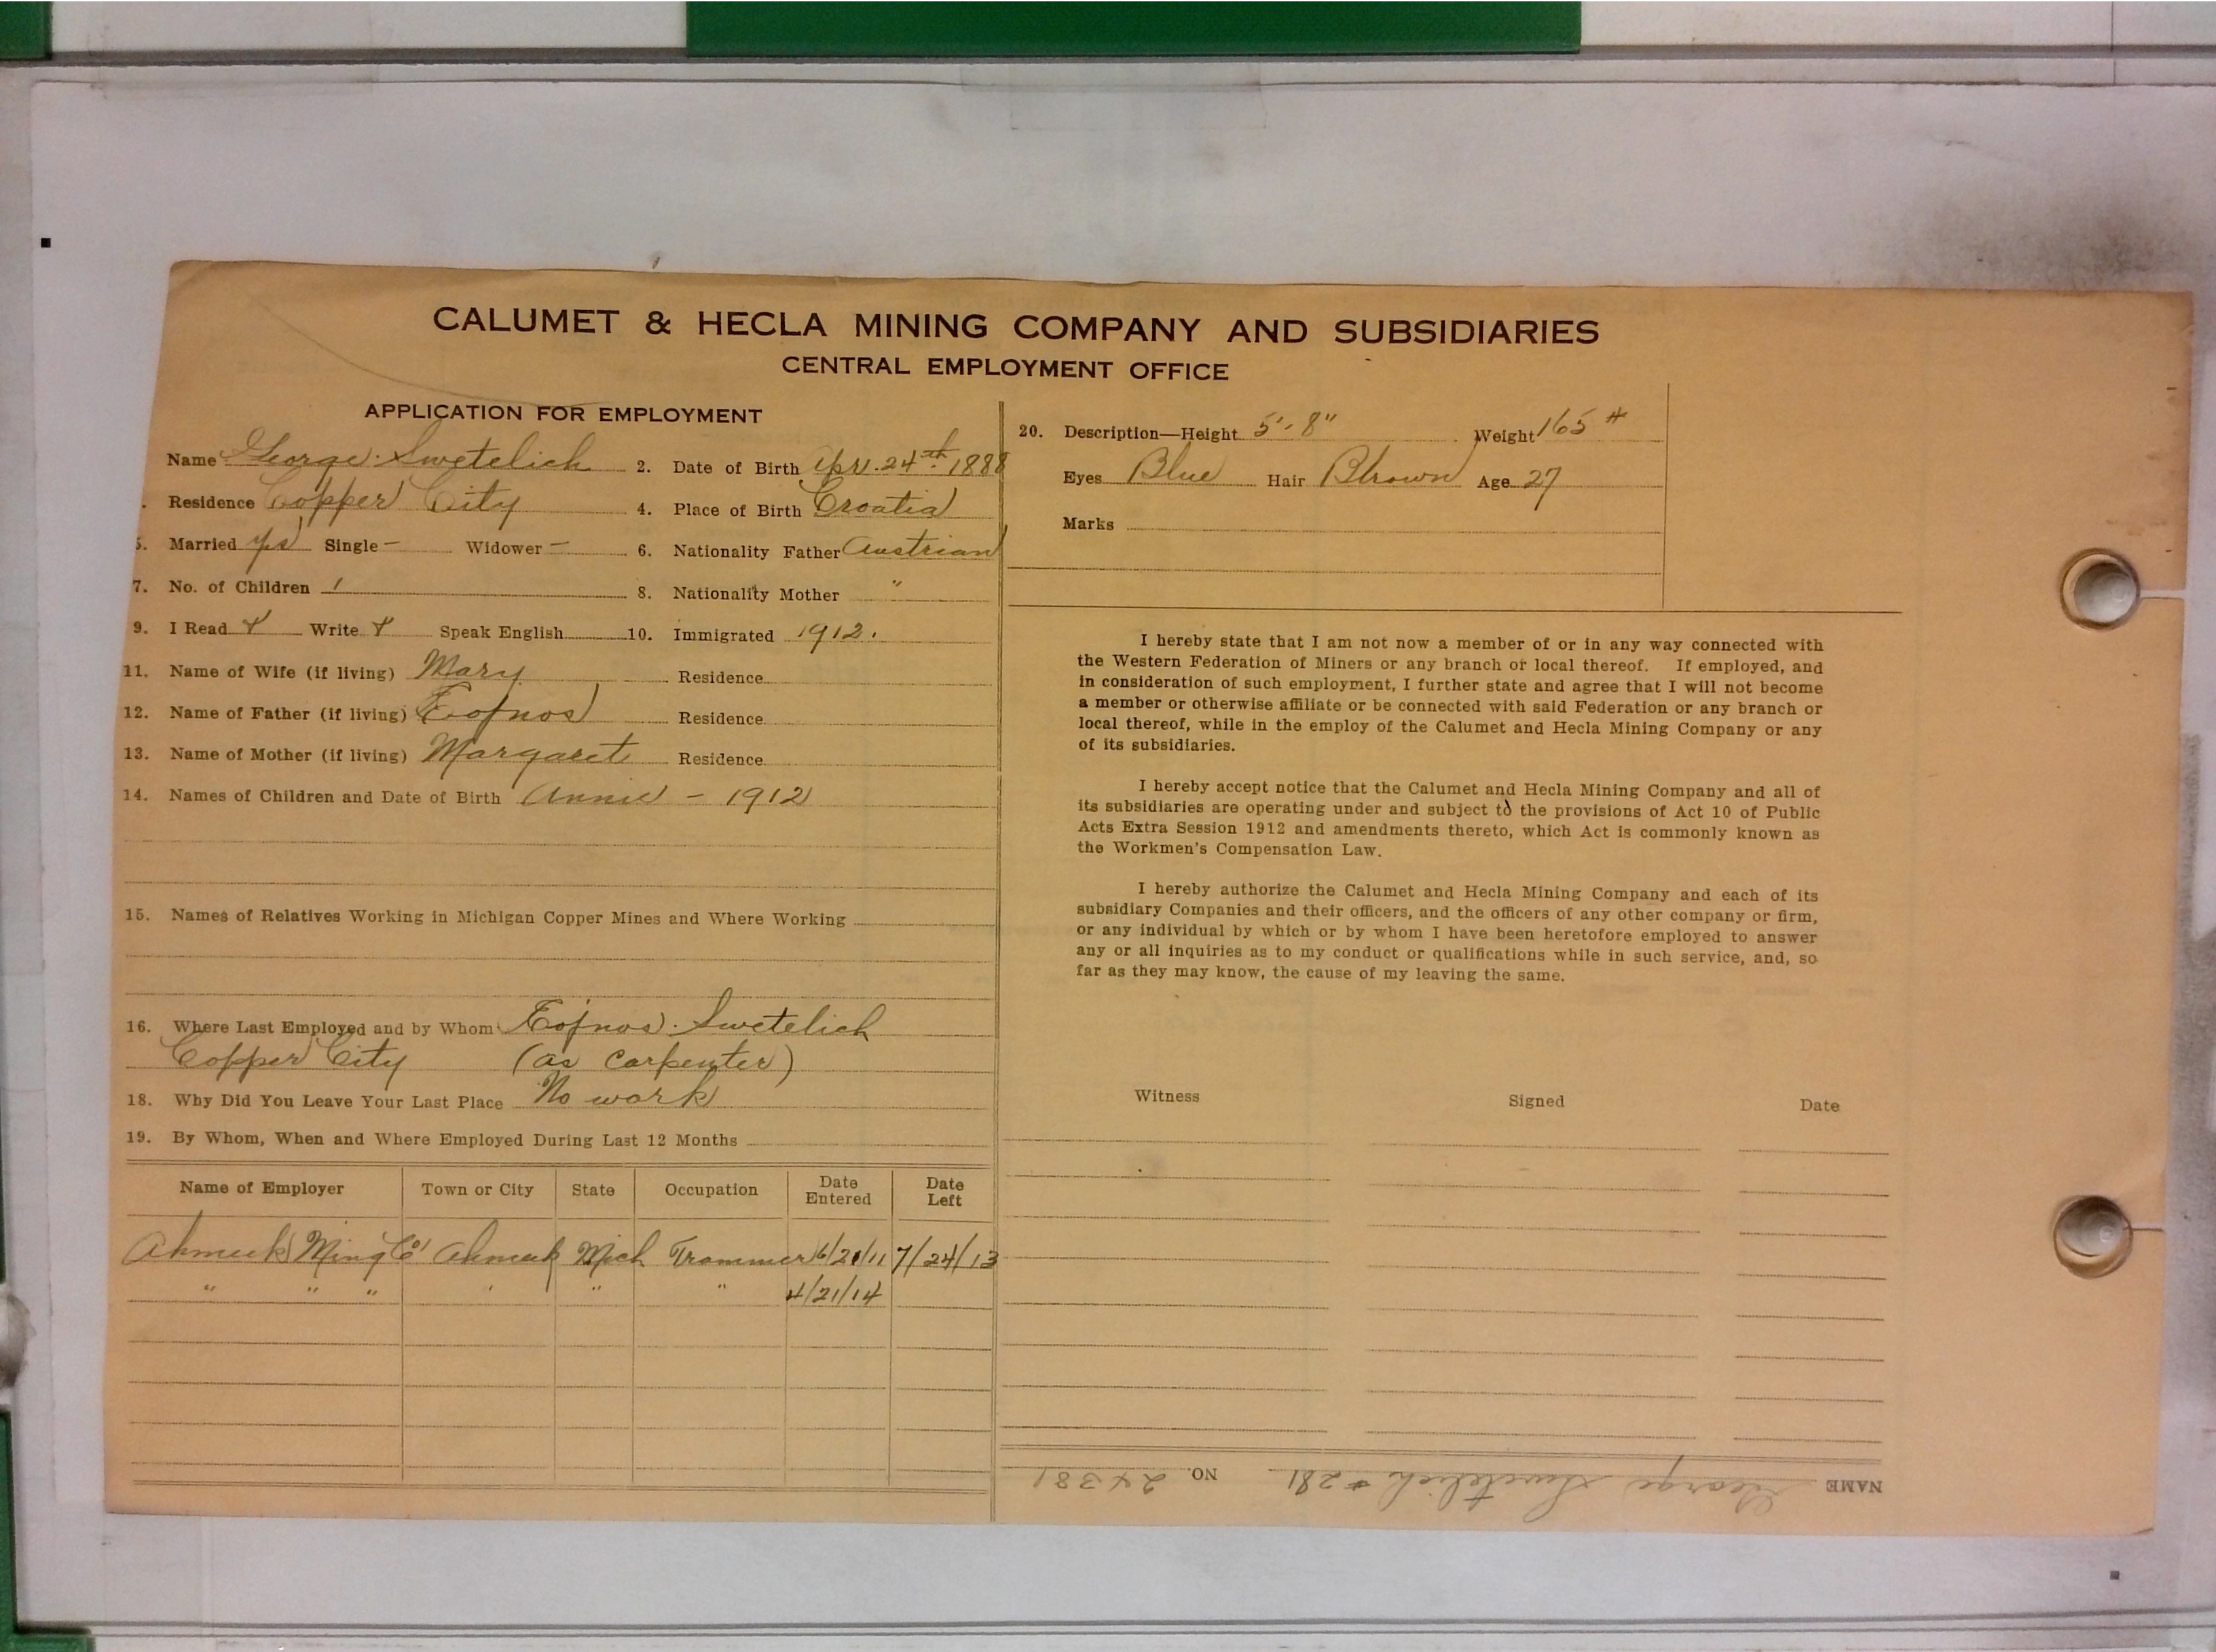 CALUMET & HECLA MINING COMPANY AND SUBSIDIARIES
CENTRAL EMPLOYMENT OFFICE
APPLICATION FOR EMPLOYMENT
Name George Swetelich 2. Date of Birth Apr. 24th 1888
Residence Copper City 4. Place of Birth Croatia
5. Married yes Single – Widower – 6. Nationality Father Austrian
7. No. of Children 1 8. Nationality Mother "
9. I Read Write Speak English 10. Immigrated 1912.
11. Name of Wife (if living) Mary Residence
12. Name of Father (if living) Residence
13. Name of Mother (if living) Margaret Residence
14. Names of Children and Date of Birth Annie – 1912
15. Names of Relatives Working in Michigan Copper Mines and Where Working
16. Where Last Employed and by Whom Swetelich
Copper City (as carpenter)
18. Why Did You Leave Your Last Place No work
19. By Whom, When and Where Employed During Last 12 Months
Name of Employer Town or City State Occupation Date Entered Date Left
Ahmeek Ming Co Ahmeek Mich Trammer 6/21/11 7/24/13
" " " " " " 4/21/14
20. Description—Height 5'-8" Weight 165 #
Eyes Blue Hair Brown Age 27
Marks
I hereby state that I am not now a member of or in any way connected with
the Western Federation of Miners or any branch or local thereof. If employed, and
in consideration of such employment, I further state and agree that I will not become
a member or otherwise affiliate or be connected with said Federation or any branch or
local thereof, while in the employ of the Calumet and Hecla Mining Company or any
of its subsidiaries.
I hereby accept notice that the Calumet and Hecla Mining Company and all of
its subsidiaries are operating under and subject to the provisions of Act 10 of Public
Acts Extra Session 1912 and amendments thereto, which Act is commonly known as
the Workmen's Compensation Law.
I hereby authorize the Calumet and Hecla Mining Company and each of its
subsidiary Companies and their officers, and the officers of any other company or firm,
or any individual by which or by whom I have been heretofore employed to answer
any or all inquiries as to my conduct or qualifications while in such service, and, so
far as they may know, the cause of my leaving the same.
Witness Signed Date
NAME George Swetelich #281 NO. 24381